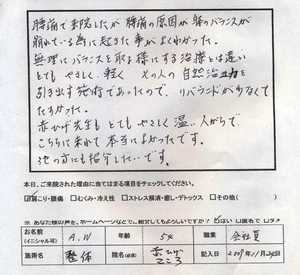 腰痛で来院したが腰痛の原因が躰のバランスが
崩れている為に起きた事がよくわかった。
無理にバランスを取る様にする治療とは違い
とてもやさしく、軽く その人の自然治力を
引き出す施術であったので、リバウンドが少なくて
たすかった。
赤ひげ先生もとてもやさしく温い人がらで
こちらに来れて本当によかったです。
他の方にも紹介したいです。
本日、ご来院された理由に当てはまる項目をチェックしてください。
肩こり・腰痛 □むくみ・冷え性 □ストレス解消・癒し・デトックス □その他( )
※ あなた様の声を、ホームページなどでご紹介してもよろしいですか? はい □匿名で
お名前 (イニシャル可) A.W 年齢 54 職業 会社員
施術名 整体 院名 赤ひげ こころ 記入日 2009年11月